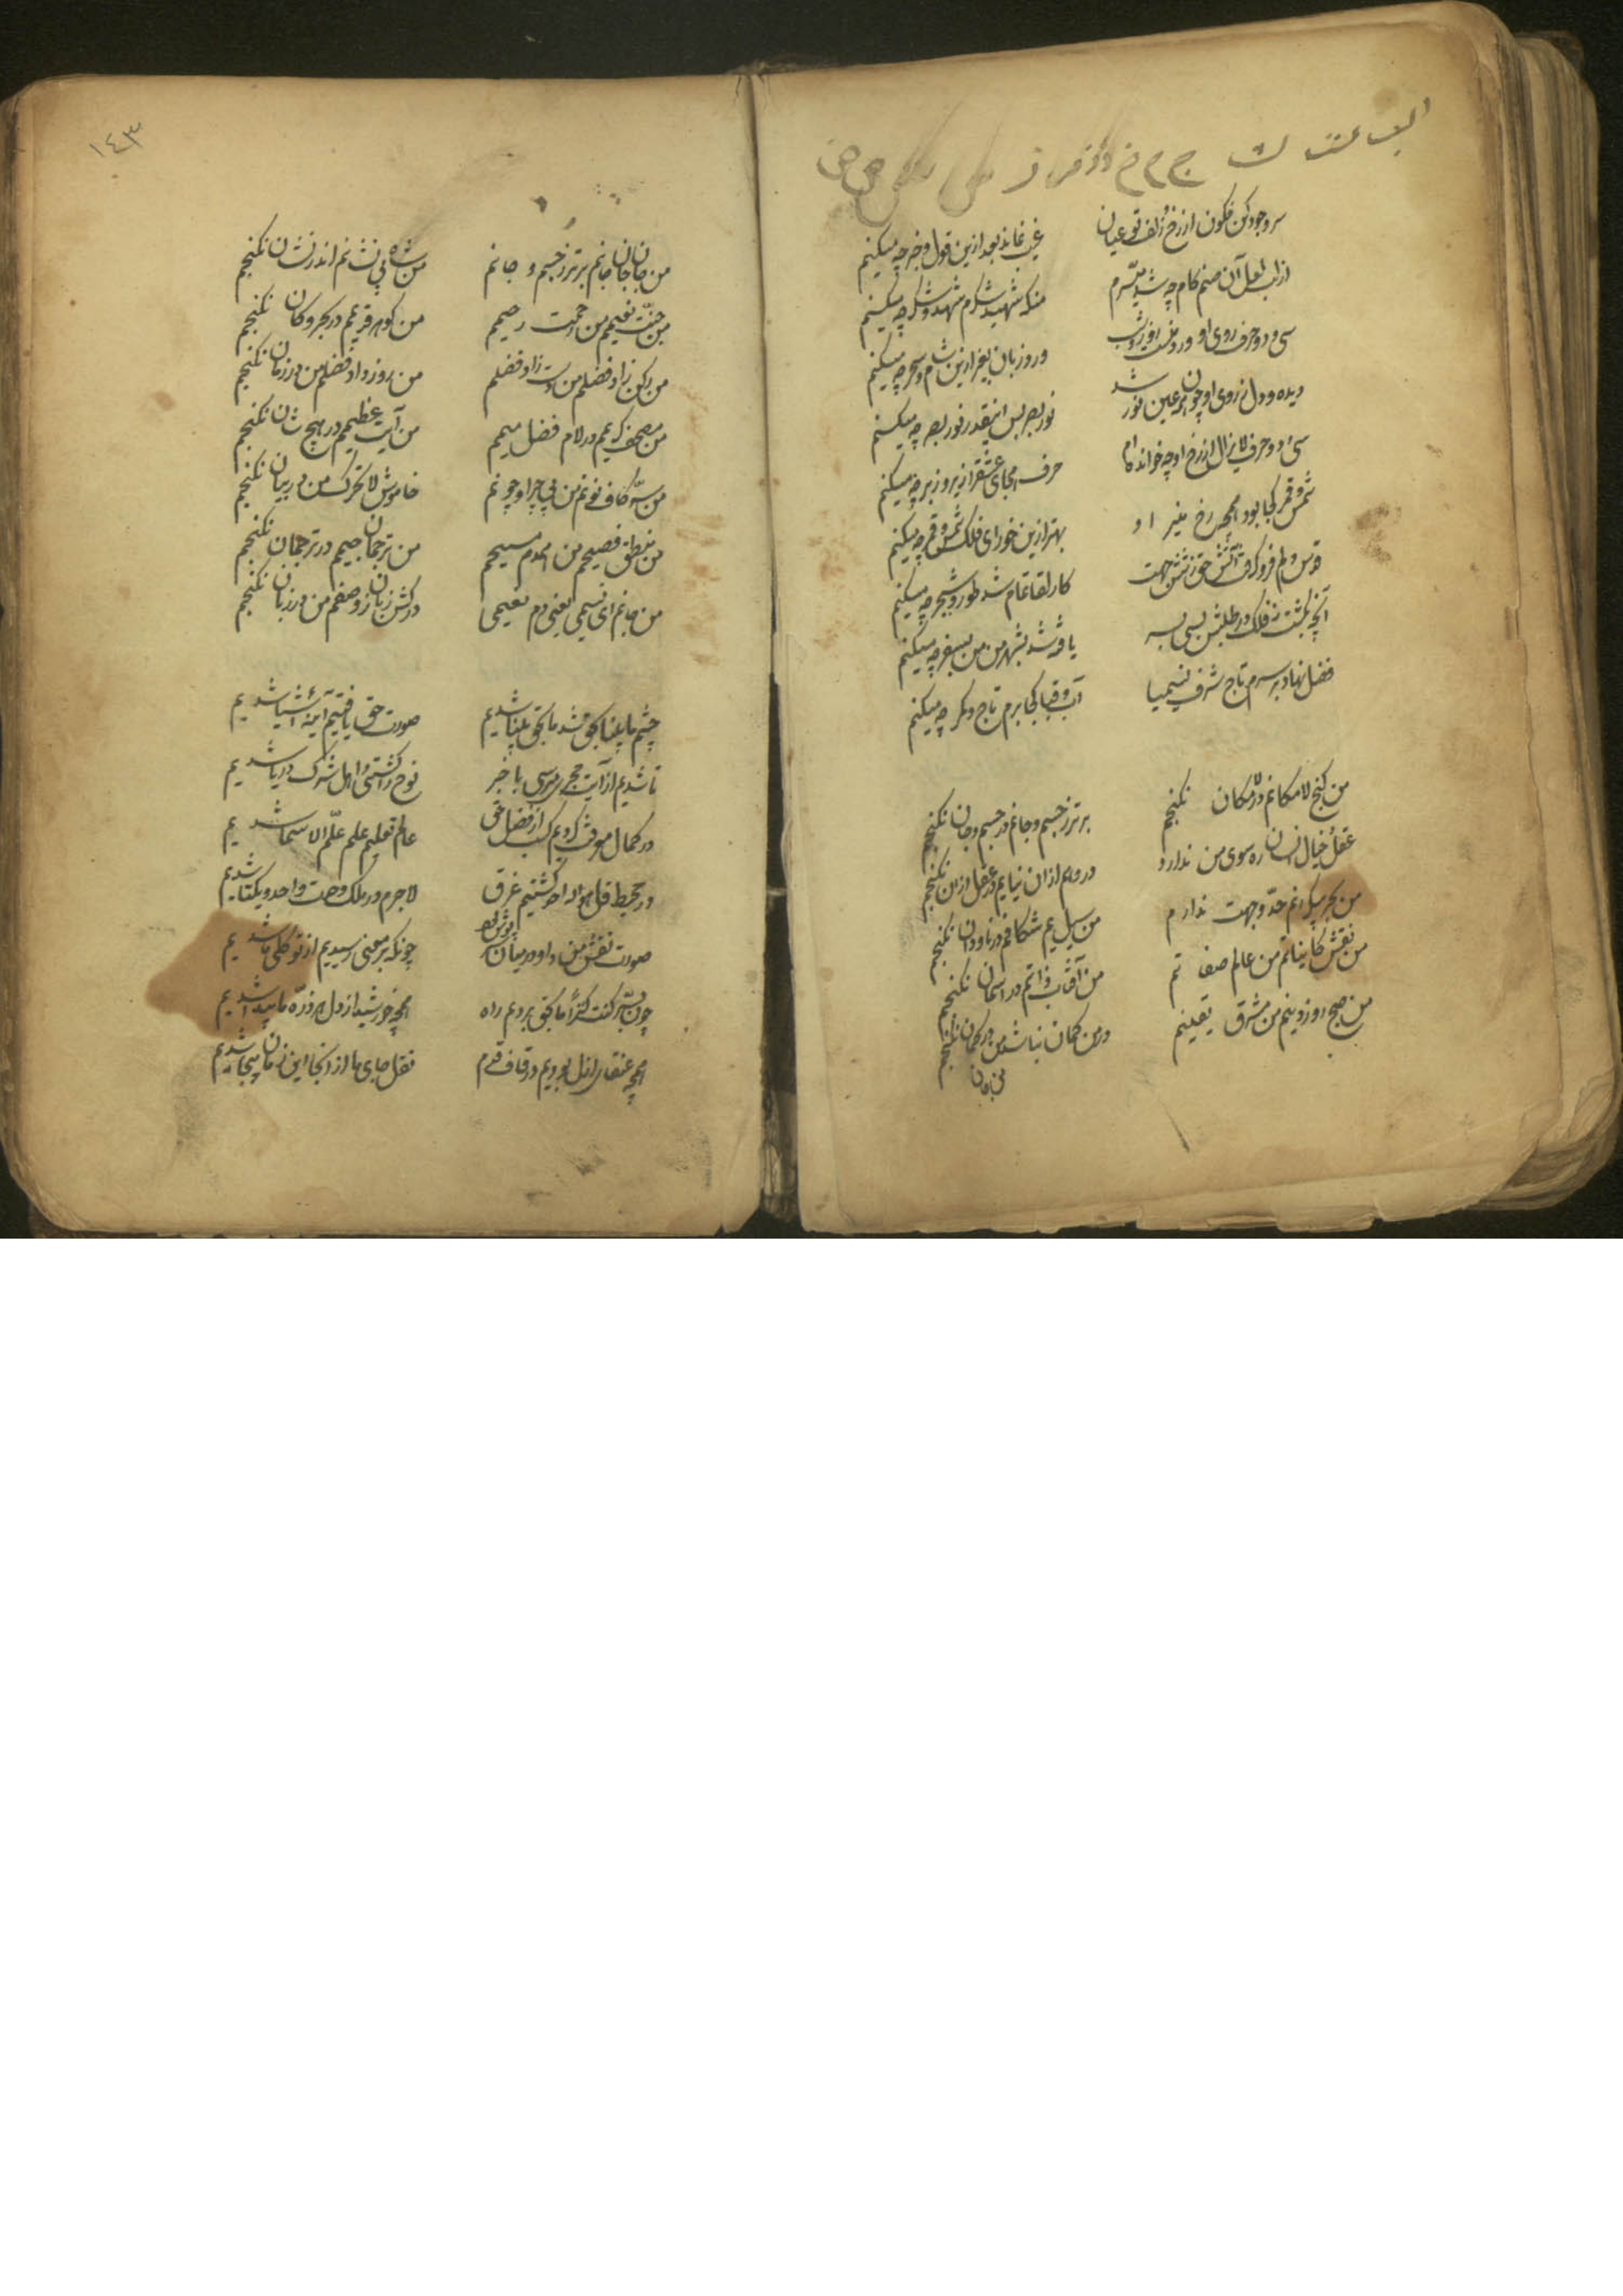 سر وجود کن فکون از رخ زلف تو عیان غیب نماند بعد ازین قول و خبر چه میکنم
از لب لعل آن صنم کام چو شد میسرم منکه شهید شکرم شهد و شکر چه میکنم
سی و دو حرف روی او ورد منست روز و شب ورد زبان بغیر ازین شام و سحر چه میکنم
دیده و دل ز روی او چون همه عین نور شد نور بصر بس اینقدر نور بصر چه میکنم
سی و دو حرف لایزال از رخ او چو خوانده‌ام حرف هجای عشق از زیر و زبر چه میکنم
شمس و قمر کجا بود همچو رخ منیر او بهتر ازین خور ای فلک شمس و قمر چه میکنم
قوس دلم فرو گرفت آتش حق ز شش جهت کار لقا تمام شد طور و شجر چه میکنم
آنچه بگشت نه فلک در طلبش بسی بسر یافته شد بشهر من من بسفر چه میکنم
فضل نهاد بر سرم تاج شرف نسیمیا اسب و قبا کجا برم تاج و کمر چه میکنم
من گنج لامکانم در لامکان نگنجم برتر ز جسم و جانم در جسم و جان نگنجم
عقل و خیال انسان ره سوی من ندارد در وهم ازان نیایم در عقل ازان نگنجم
من بحر بیکرانم حد و جهت ندارم من سیل یم شکافم در ناودان نگنجم
من نقش کایناتم من عالم صفاتم من آفتاب ذاتم در آسمان نگنجم
من صبح روز دینم من مشرق یقینم در من گمان نباشد من در گمان نگنجم
من جان
١٤٣
من جان جان جانم برتر ز جسم و جانم من شاه بی نشانم اندر نشان نگنجم
من جنت نعیمم من رحمت رحیمم من گوهر قدیمم در بحر و کان نگنجم
من مصحف کریمم در لام فضل میمم من آیت عظیمم در هیچ شان نگنجم
من سر کاف و نونم من بی چرا و چونم خاموش لا تحرک من در بیان نگنجم
من منطق فصیحم من همدم مسیحم من ترجمان جیمم در ترجمان نگنجم
من جانم ای نسیمی یعنی دم نعیمی درکش زبان ز وصفم من در زبان نگنجم
چشم ما بینا بحق شد ما بحق بینا شدیم صورت حق یافتیم آیینه اشیا شدیم
در کمال معرفت کردیم کسب از فضل حق عالم تعلیم علم علم الاسما شدیم
در محیط قل هو الله احد گشتیم غرق لاجرم در ملک وحدت واحد و یکتا شدیم
چون بسر کنت کنزا ما بحق بردیم راه همچو خورشید از دل هر ذره ما پیدا شدیم
همچو عنقای ازل بودیم در قاف قدم نقل جای ما از آنجا این زمان پیجا شدیم